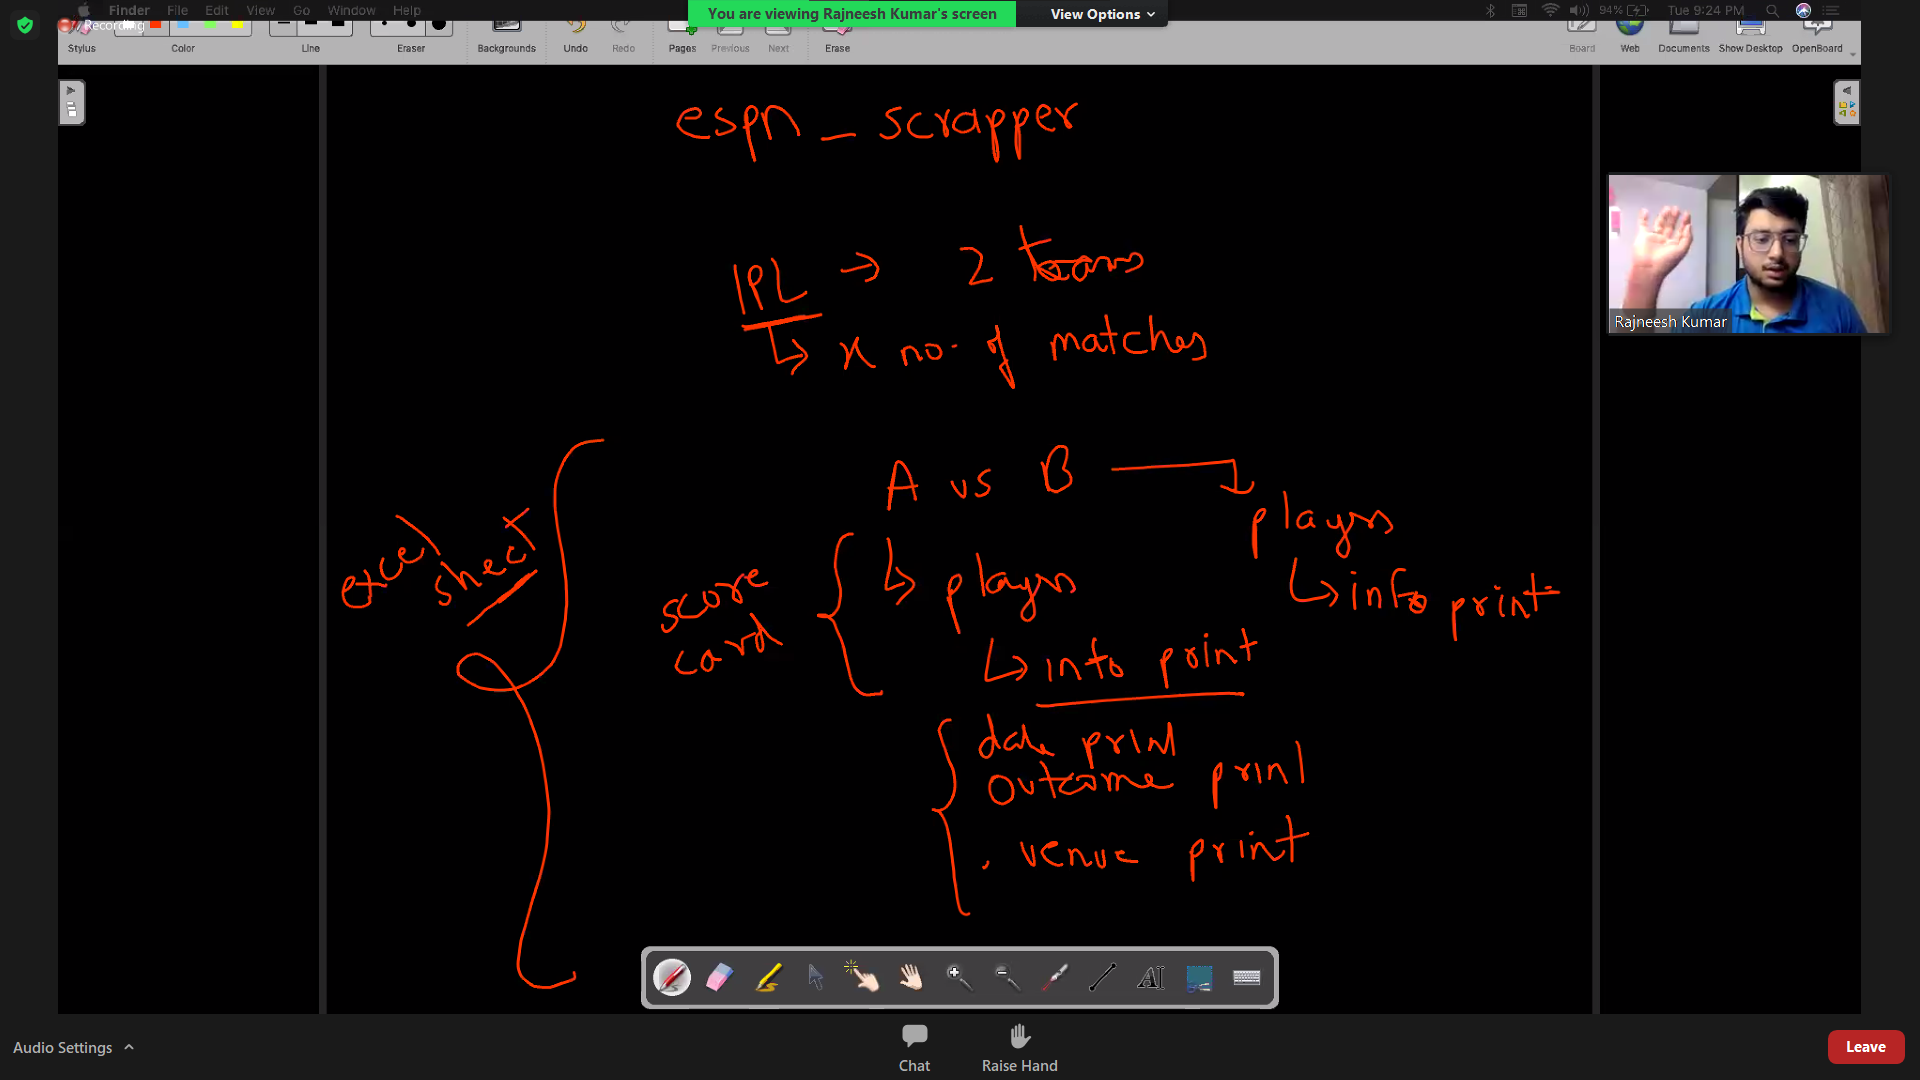 Finder File Edit View Go Window Help
You are viewing Rajneesh Kumar's screen View Options
94% Tue 9:24 PM
Recording
Stylus Color Line Eraser Backgrounds Undo Redo Pages Previous Next Erase Board Web Documents Show Desktop OpenBoard
espn_scrapper
IPL → 2 teams
↳ x no. of matches
Rajneesh Kumar
A vs B
players
↳ info print
excel sheet
score card
↳ players
↳ info print
date print
outcome print
. venue print
Audio Settings
Chat
Raise Hand
Leave